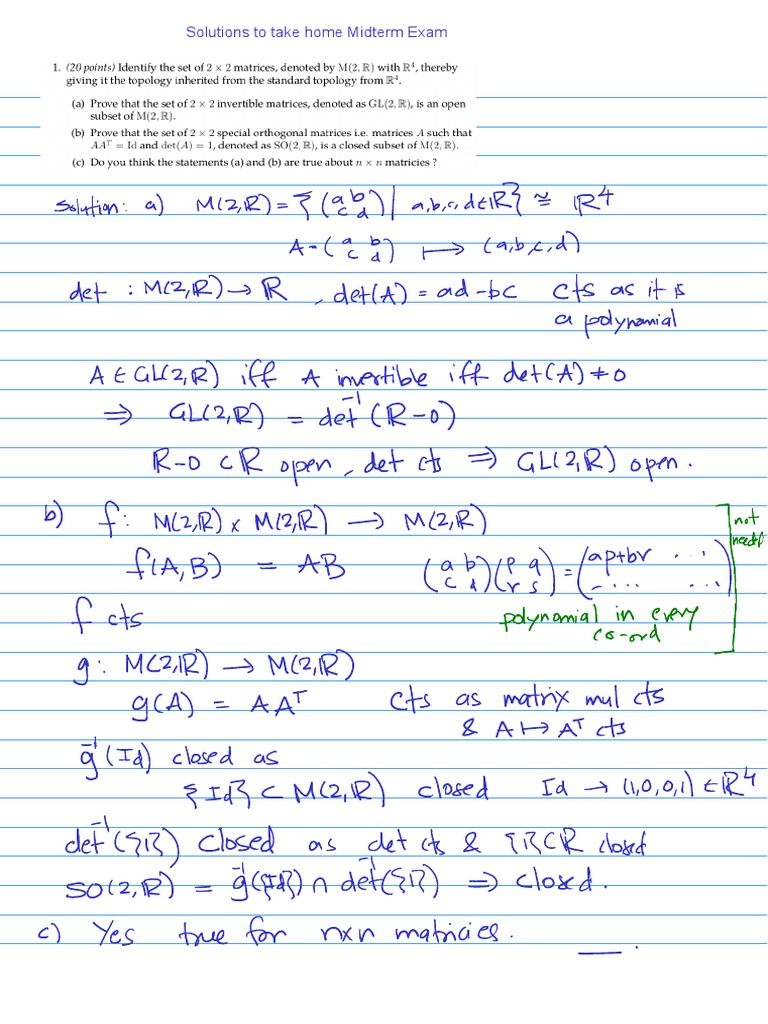 Solutions to take home Midterm Exam
1. (20 points) Identify the set of 2 × 2 matrices, denoted by M(2, ℝ) with ℝ⁴, thereby
giving it the topology inherited from the standard topology from ℝ⁴.
(a) Prove that the set of 2 × 2 invertible matrices, denoted as GL(2, ℝ), is an open
subset of M(2, ℝ).
(b) Prove that the set of 2 × 2 special orthogonal matrices i.e. matrices A such that
AAᵀ = Id and det(A) = 1, denoted as SO(2, ℝ), is a closed subset of M(2, ℝ).
(c) Do you think the statements (a) and (b) are true about n × n matricies ?
Solution: a) M(2,ℝ) = { (a b; c d) | a,b,c,d ∈ ℝ² } ≅ ℝ⁴
A = (a b; c d) ⟼ (a,b,c,d)
det : M(2,ℝ) → ℝ , det(A) = ad-bc cts as it is
a polynomial
A ∈ GL(2,ℝ) iff A invertible iff det(A) ≠ 0
⇒ GL(2,ℝ) = det⁻¹(ℝ-0)
ℝ-0 ⊂ ℝ open, det cts ⇒ GL(2,ℝ) open.
b) f: M(2,ℝ) × M(2,ℝ) → M(2,ℝ) not
f(A,B) = AB (a b; c d)(p q; r s) = (ap+br ...; .... ...)
f cts polynomial in every
co-ord
g: M(2,ℝ) → M(2,ℝ)
g(A) = AAᵀ cts as matrix mul cts
& A ↦ Aᵀ cts
g⁻¹(Id) closed as
{Id} ⊂ M(2,ℝ) closed Id → (1,0,0,1) ∈ ℝ⁴
det⁻¹({1}) closed as det cts & {1} ⊂ ℝ closed
SO(2,ℝ) = g⁻¹({Id}) ∩ det⁻¹({1}) ⇒ closed.
c) Yes true for nxn matricies.